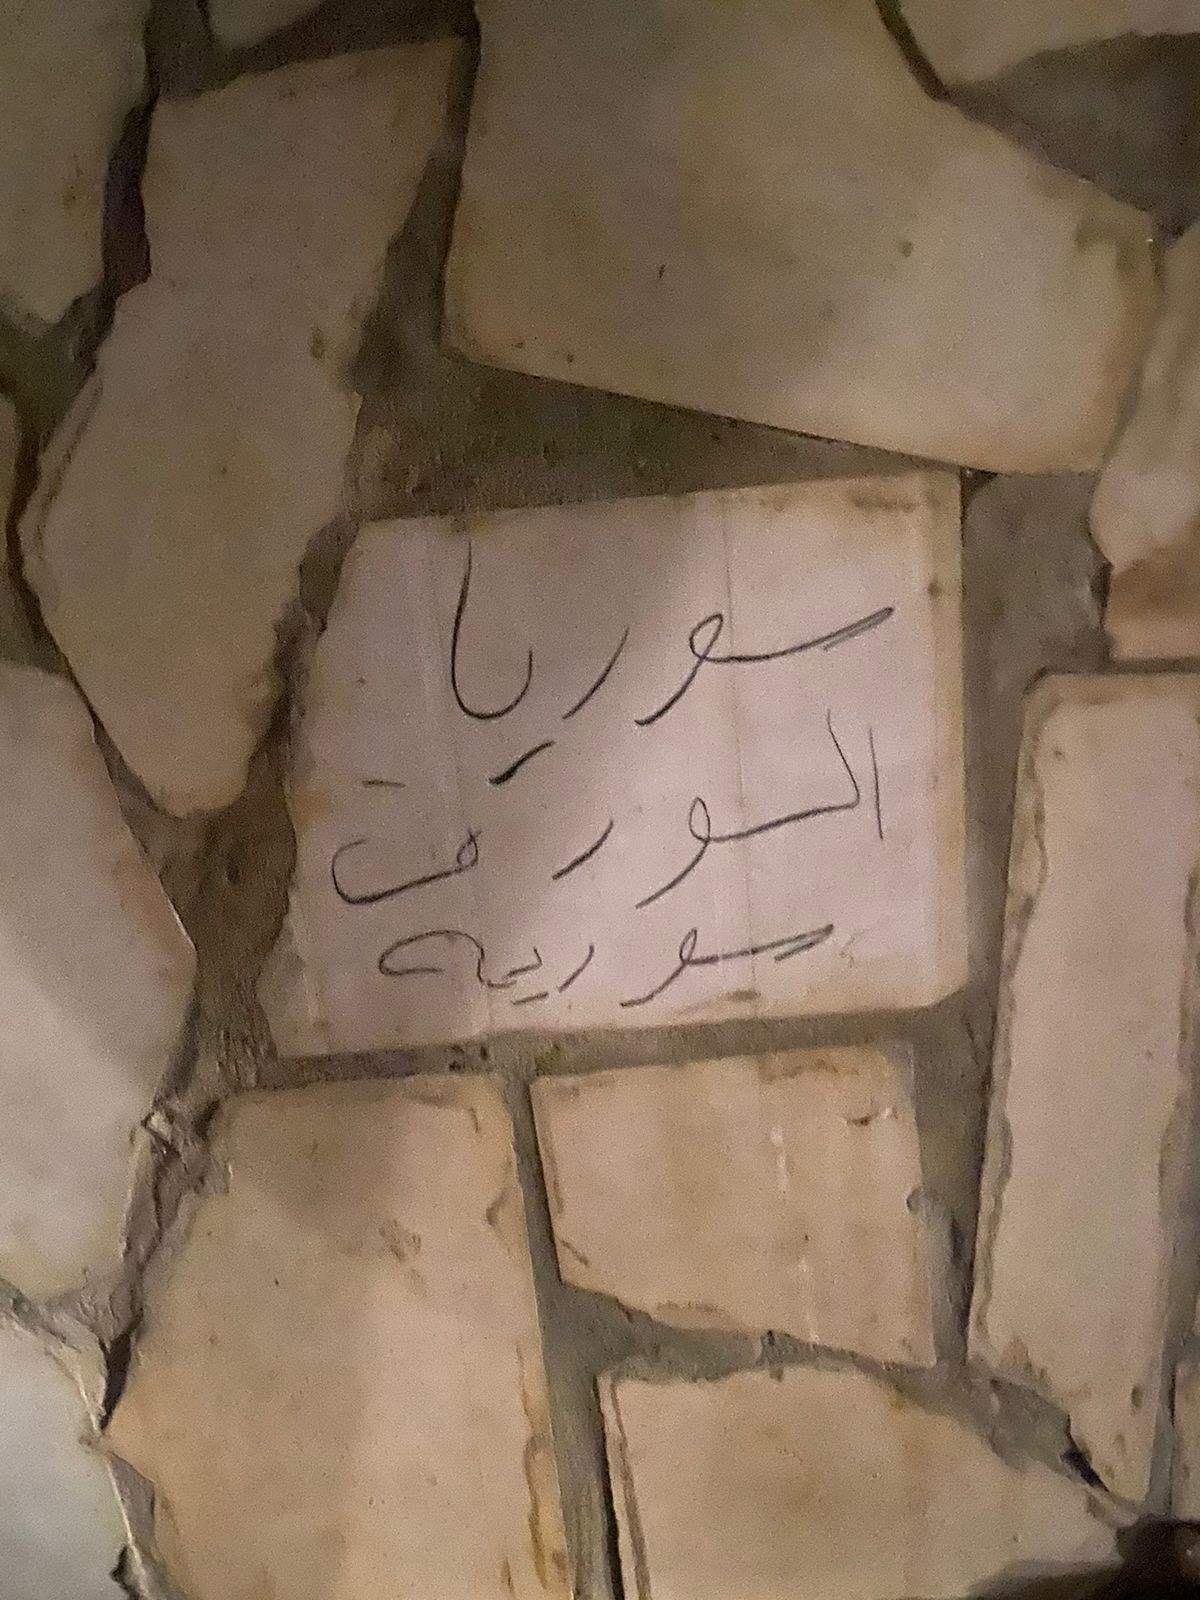 سوريا
السورية
سورية